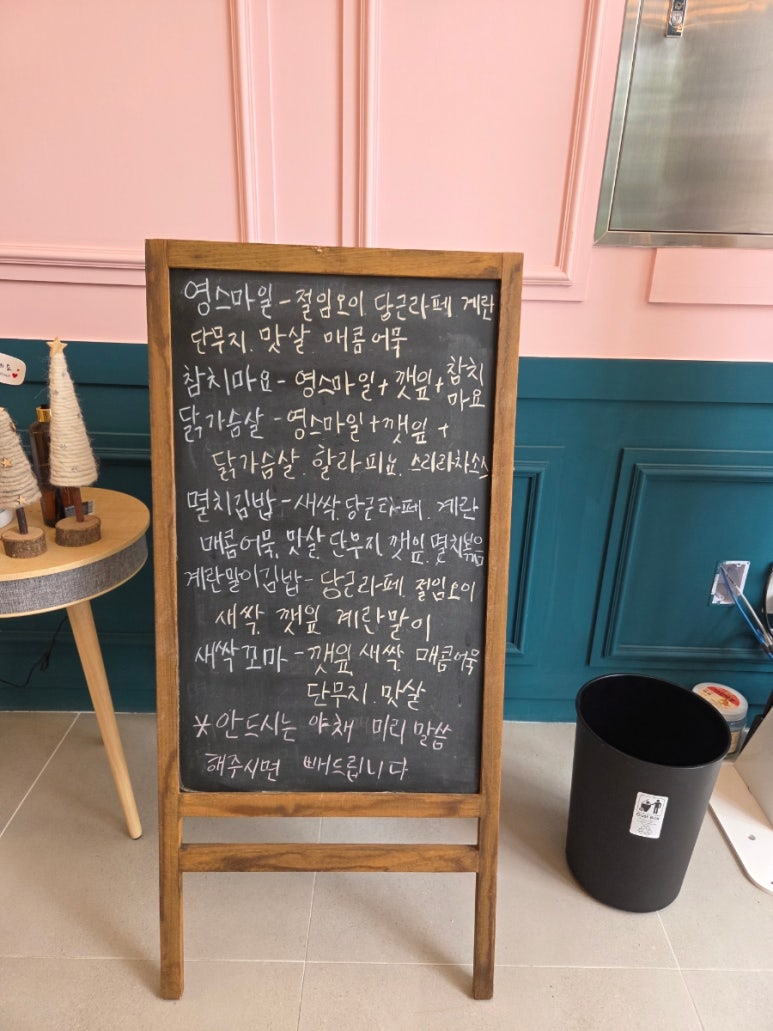 영스마일 - 절임오이 당근라페 계란
단무지. 맛살. 매콤어묵
참치마요 - 영스마일 + 깻잎 + 참치마요
닭가슴살 - 영스마일 + 깻잎 +
닭가슴살. 할라피뇨. 스리라차소스
멸치김밥 - 새싹. 당근라페. 계란
매콤어묵. 맛살 단무지. 깻잎. 멸치볶음
계란말이김밥 - 당근라페 절임오이
새싹. 깻잎 계란말이
새싹꼬마 - 깻잎 새싹. 매콤어묵
단무지. 맛살
* 안드시는 야채 미리 말씀
해주시면 빼드립니다